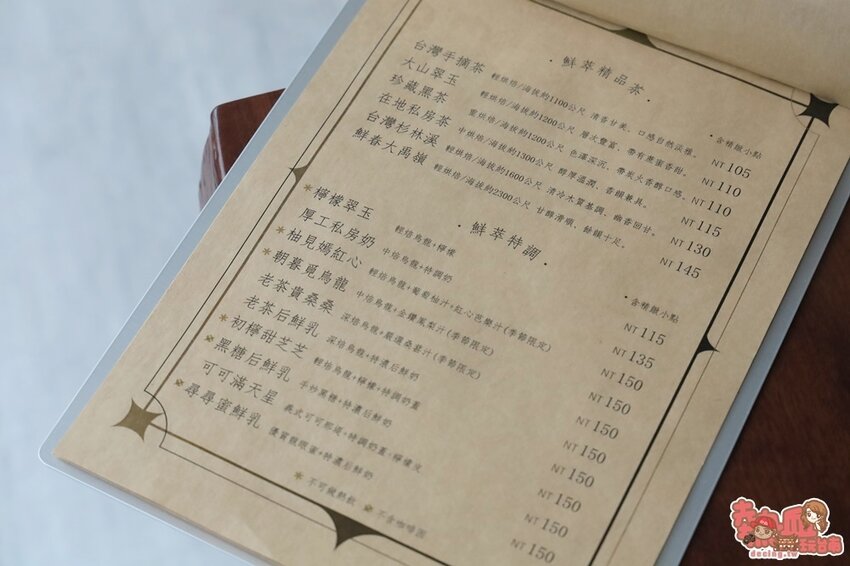 · 鮮萃精品茶 ·
·含精緻小點
台灣手摘茶 輕烘焙/海拔約1100公尺 清香甘美、口感自然淡雅。 NT 105
大山翠玉 輕烘焙/海拔約1200公尺 層次豐富、帶有蔗蜜香甜。 NT 110
珍藏黑茶 重烘焙/海拔約1200公尺 色澤深沉、帶炭火香醇口感。 NT 110
在地私房茶 中烘焙/海拔約1300公尺 醇厚溫潤、香韻兼具。 NT 115
台灣杉林溪 輕烘焙/海拔約1600公尺 清冷木質基調、幽香回甘。 NT 130
鮮春大禹嶺 輕烘焙/海拔約2300公尺 甘醇清順、餘韻十足。 NT 145
· 鮮萃特調 ·
·含精緻小點
*檸檬翠玉 輕焙烏龍+檸檬 NT 115
厚工私房奶 中焙烏龍+特調奶 NT 135
*柚見嫣紅心 輕焙烏龍+葡萄柚汁+紅心芭樂汁(季節限定) NT 150
*朝暮覓烏龍 中焙烏龍+金鑽鳳梨汁(季節限定) NT 150
老茶貴桑桑 深焙烏龍+嚴選桑葚汁(季節限定) NT 150
老茶后鮮乳 深焙烏龍+特濃后鮮奶 NT 150
*初檸甜芝芝 輕焙烏龍+檸檬+特調奶蓋 NT 150
*黑糖后鮮乳 手炒黑糖+特濃后鮮奶 NT 150
可可滿天星 義式可可那堤+特調奶蓋+檸檬皮 NT 150
*尋尋蜜鮮乳 優質龍眼蜜+特濃后鮮奶 NT 150
*不可做熱飲 *不含咖啡因
熱血玩台南
decing.tw